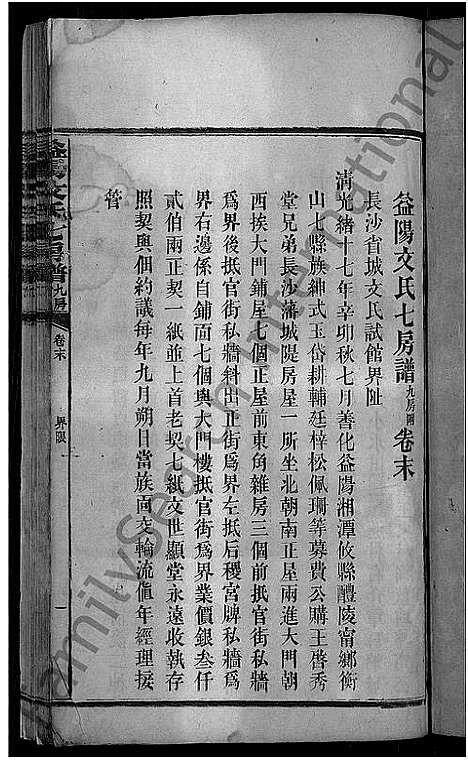 益陽文氏七房譜九房附卷末
長沙省城文氏試館界址
清光緒十七年辛卯秋七月善化益陽湘潭攸縣醴陵甯鄉衡
山七縣族紳式玉岱耕輔廷梓松佩珊等募費公購王啓秀
堂兄弟長沙藩城隄房屋一所坐北朝南正屋兩進大門朝
西挨大門鋪屋七個正屋前東角雜房三個前抵官街私牆
爲界後抵官街私牆斜出正街爲界左抵后稷宮牌私牆爲
界右邊係自鋪面七個與大門樓抵官街爲界業價銀叁仟
貳伯兩正契一紙並上首老契七紙文世顯堂永遠收執存
照契與佃約議每年九月朔日當族面交輪流值年經理接
管
益陽文氏七房譜 九房
卷末
界限
一
FamilySearch International